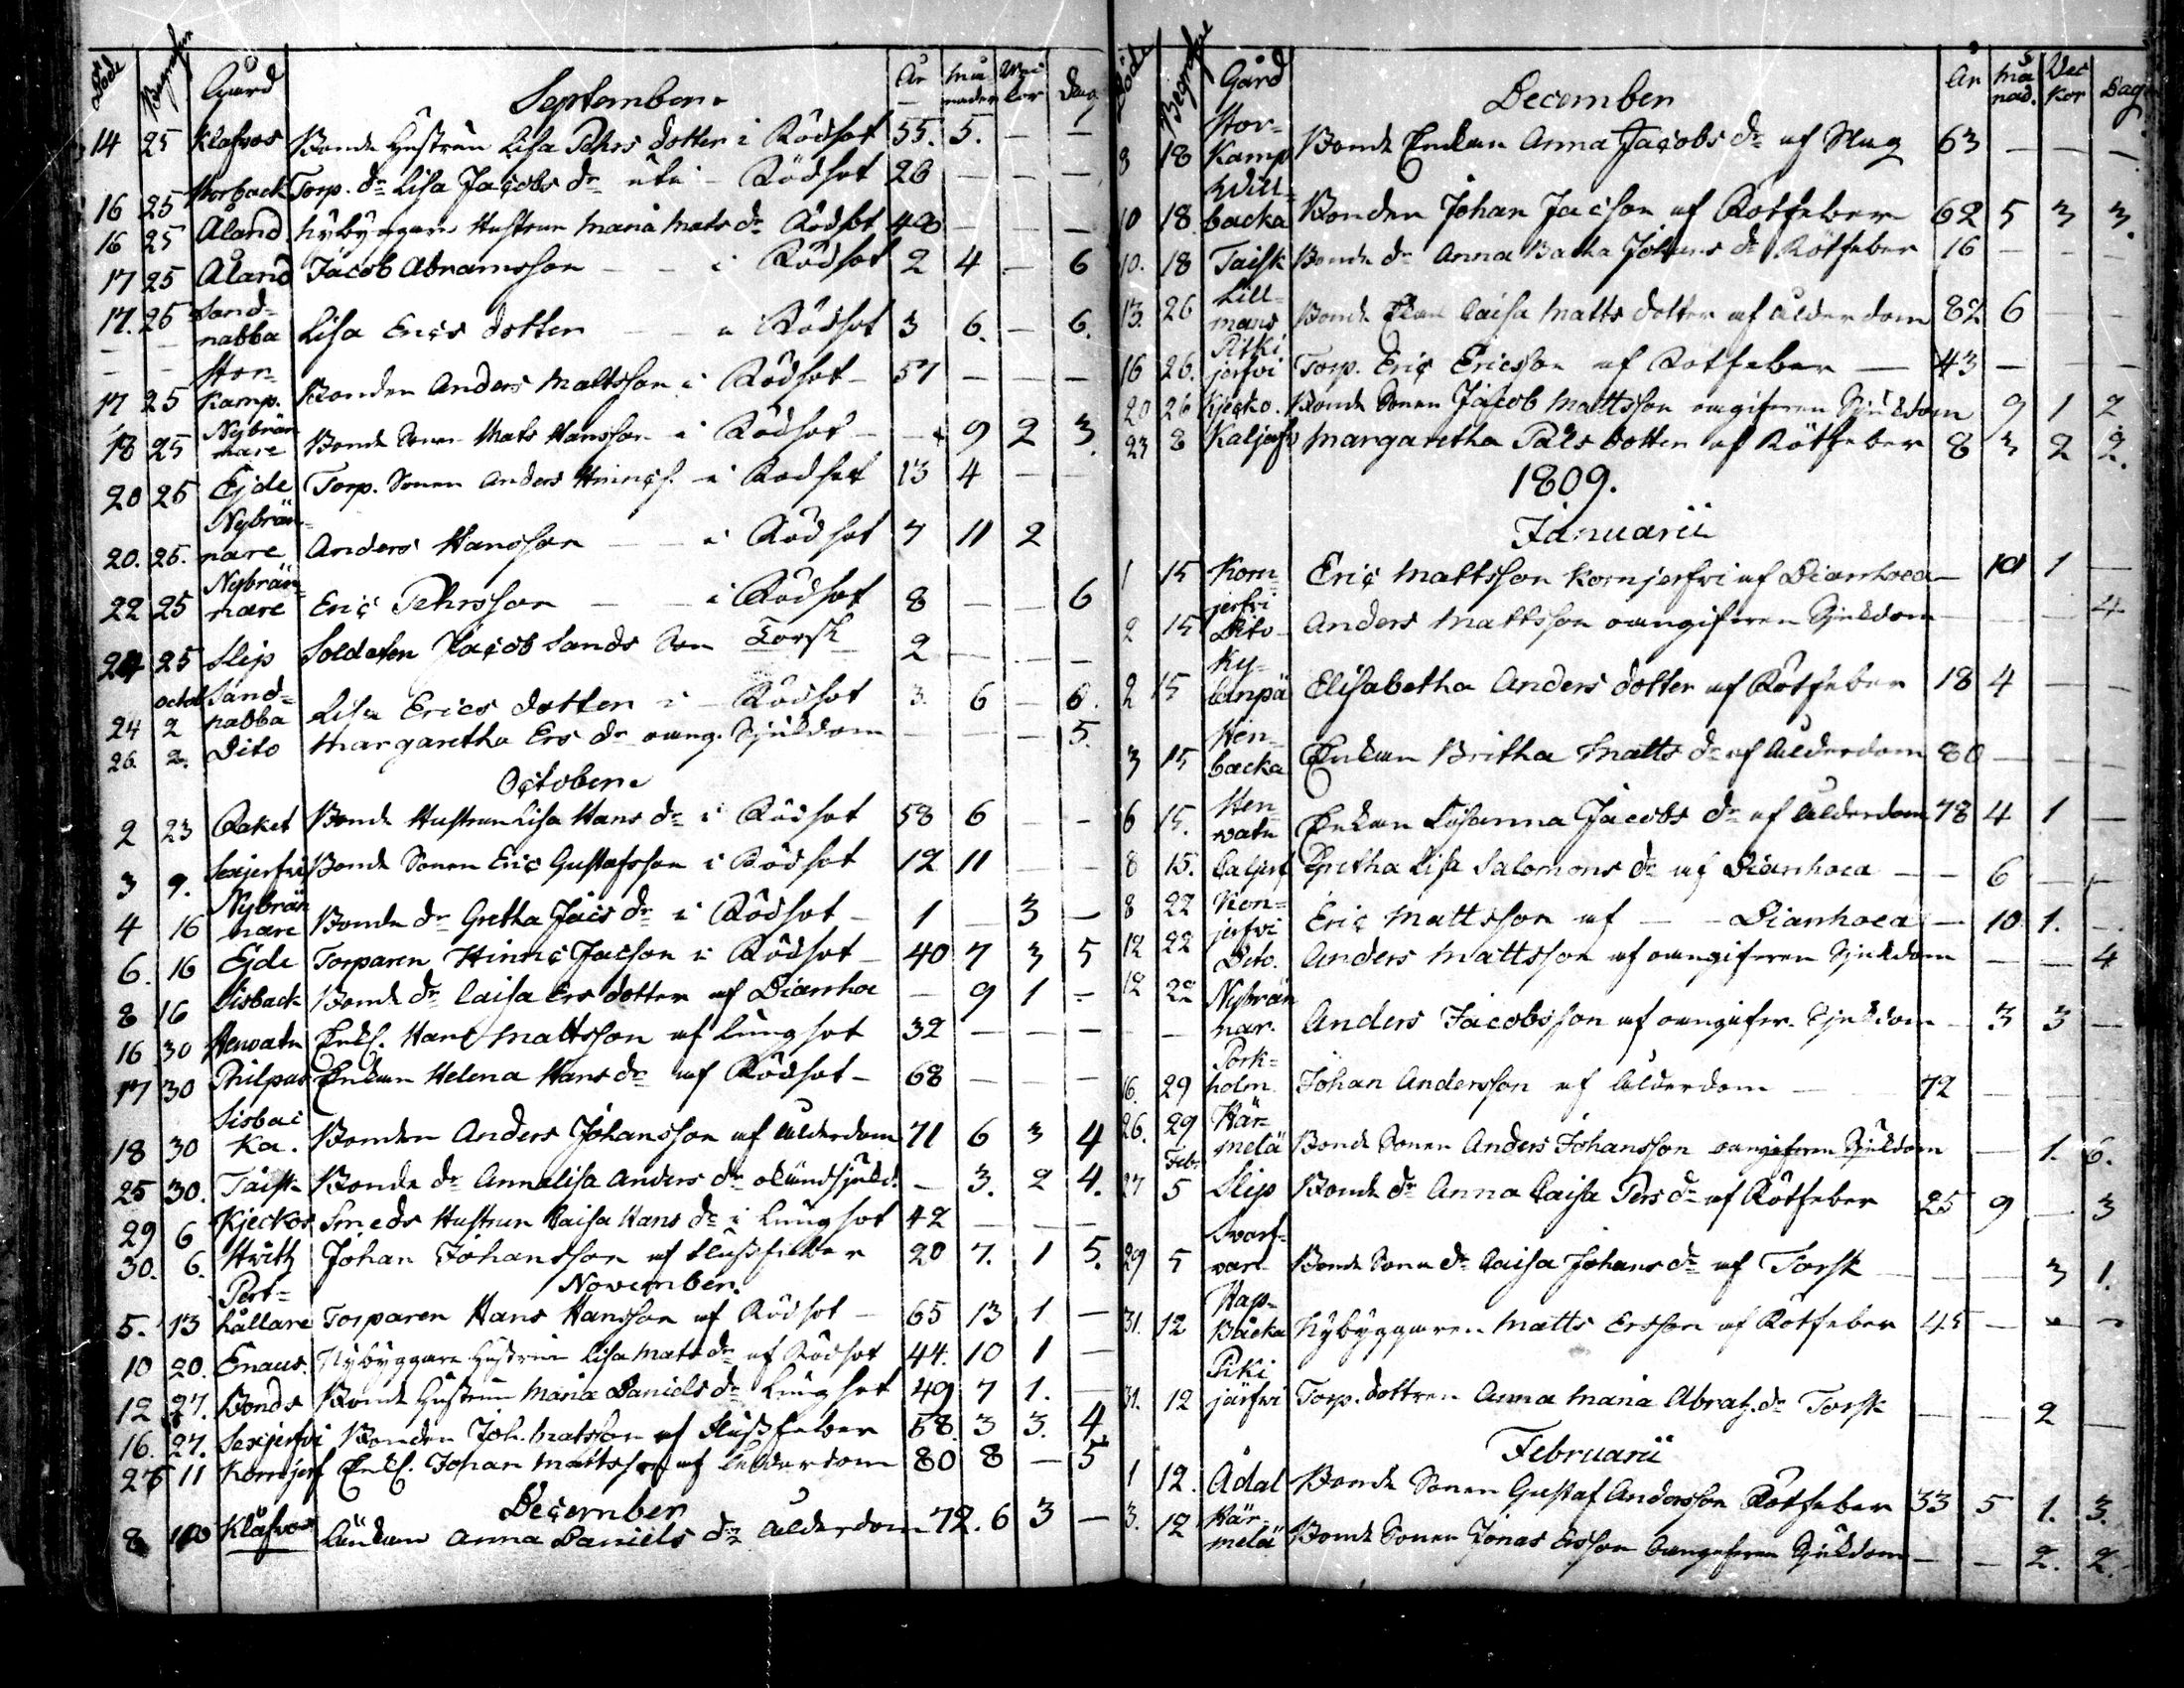 Döde Begrafne Gård Septembere År månader Veckor Dagar
14 25 Klafvos Bonde Hustrun Lisa Pehrs dotter i Rödsot 55. 5. — —
16 25 Storback Torp. dr Lisa Jacobs dr uti - Rödsot 26 — — —
16 25 Åland. Nybyggare Hustrun Maria Mats dr Rödsot 48 — — —
17 25 Åland Jacob Abramsson — — i Rödsot 2 4 — 6
17. 25 Sand=
nabba Lisa Erics dotter — — i Rödsot 3 6. — 6.
17 25 Stor-
Kamp. Bonden Anders Mattsson i Rödsot - 57 — — —
18 25 Nybrän
nare Bonde Sonen Mats Hansson i Rödsot — — 9 2 3.
20 25 Ejde Torp. Sonen Anders Hinrics. i Rödsot 13 4 — —
20. 25. Nybrän-
nare Anders Hansson — — i Rödsot 7 11 2
22 25 Nybrän=
nare Eric Pehrsson — — i Rödsot 8 — — 6
24 25 Slip Soldaten Jacob Sands Son Torsk 2 — — —
24 octob 2 Sand=
nabba Lisa Erics dotter i - Rödsot 3. 6 — 6.
26. 2. Dito Margaretha Ers dr oang. Sjukdom — — — 5.
Octobere
2 23 Raket Bonde Hustrun Lisa Hans dr i Rödsot 58 6 — —
3 9. Sexjerfvi Bonde Sonen Eric Gustafsson i Rödsot 12 11 — —
4 16 Nybrän
nare Bonde dr Gretha Jacs dr i Rödsot - 1 — 3 —
6. 16 Ejde Torparen Hinric Jacson i Rödsot - 40 7 3 5
8 16 Lisback Bonde dr Caisa Ers dotter af Diarrhoe — 9 1 —
16 30 Stenvatn Enkl. Hans Mattsson af Lungsot 32 — — —
17 30 Philpus Enkan Helena Hans dr af Rödsot - 68 — — —
18 30 Lisbac
ka. Bonden Anders Johansson af Ålderdom 71 6 3 4
25 30. Taisk Bonde dr Annalisa Anders dr okänd sjukd. — 3. 2 4.
29 6 Kjeckos Smeds Hustrun Caisa Hans dr i Lungsot 42 — — —
30. 6. Johan Johansson af Flussfeber 20 7. 1 5.
November.
5. 13 Port=
hållare Torparen Hans Hansson af Rödsot — 65 13 1 —
10 20. Enaus. Nybyggare Hustrun Lisa Mats dr af Rödsot 44. 10 1 —
12 27. Bonds Bonde Hustrun Maria Daniels dr Lungsot 49 7 1. —
16. 27. Sexjerfvi Bonden Joh. Matsson af Flussfeber 58. 3 3. 4
28 11 Kornjerf Enkl. Johan Mattsson af Ålderdom 80 8 — 5
December
8 18 Klåfvos Enkan Anna Daniels dr Ålderdom 72. 6 3 —
Döde Begrafne Gård December År månad. Veckor Dagar
8 18 Stor-
Kamp Bonde Enkan Anna Jacobs dr af Slag 63 — — —
10 18. Will=
backa Bonden Johan Jacson af Rötfeber 62 5 3 3.
10. 18 Taisk Bonde dr Anna Johans dr Rötfeber 16 — — —
13. 26 Lill=
mans Bonde Enkan Caisa Matts dotter af Ålderdom 82 6 — —
16 26. Pitki
jerfvi Torp. Eric Ericsson af Rötfeber — 43 — — —
20 26 Kjecko. Bonde Sonen Jacob Mattsson oangifven Sjukdom 9 1 2
23 8 Kaljerfv Margaretha Påls dotter af Rötfeber 8 3 2 2.
1809.
Januarii
1 15 Korn=
jerfvi Eric Mattsson Kornjerfvi af Diarrhoea — 10 1 —
2 15 Dito - Anders Mattsson oangifven Sjukdom — — — 4
2 15 Ky=
länpä Elisabetha Anders dotter af Rötfeber 18 4 — —
3 15 Sten=
backa Enkan Britha Matts dr af Ålderdom 80 — — —
6 15. Sten
vatn Enkan Susanna Jacobs dr af Ålderdom 78 4 1 —
8 15. Caljerf Gretha Lisa Salomons dr af Diarrhoea — — 6 — —
8 22 Kon=
jerfvi Eric Mattsson af — — Diarrhoea — 10. 1. —
12 22 Dito. Anders Mattsson af oangifven Sjukdom — — 4
12 22 Nybrän
nar. Anders Jacobsson af oangifve. Sjukdom — 3 3 —
16. 29 Pork=
holm Johan Andersson af Ålderdom — 72 — — —
26. 29 Här-
melä Bonde Sonen Anders Johansson oangifven Sjukdom — 1. 6.
27 Febr 5 Slip Bonde dr Anna Caisa Pers dr af Rötfeber 25 9 — 3
29 5 Svarf-
var Bonde Sons dr Caisa Johans dr af Torsk — — 3 1.
31. 12 Hap-
Backa Nybyggaren Matts Ersson af Rötfeber 45 — — —
31. 12 Piki
järfvi Torp. dottren Anna Maria Abrah. dr Torsk — — 2 —
Februarii
1 12. Ådal Bonde Sonen Gustaf Andersson Rötfeber 33 5 1. 3.
3. 12 Här-
melä Bonde Sonen Jonas Ersson oangifven Sjukdom — — 2. 2.